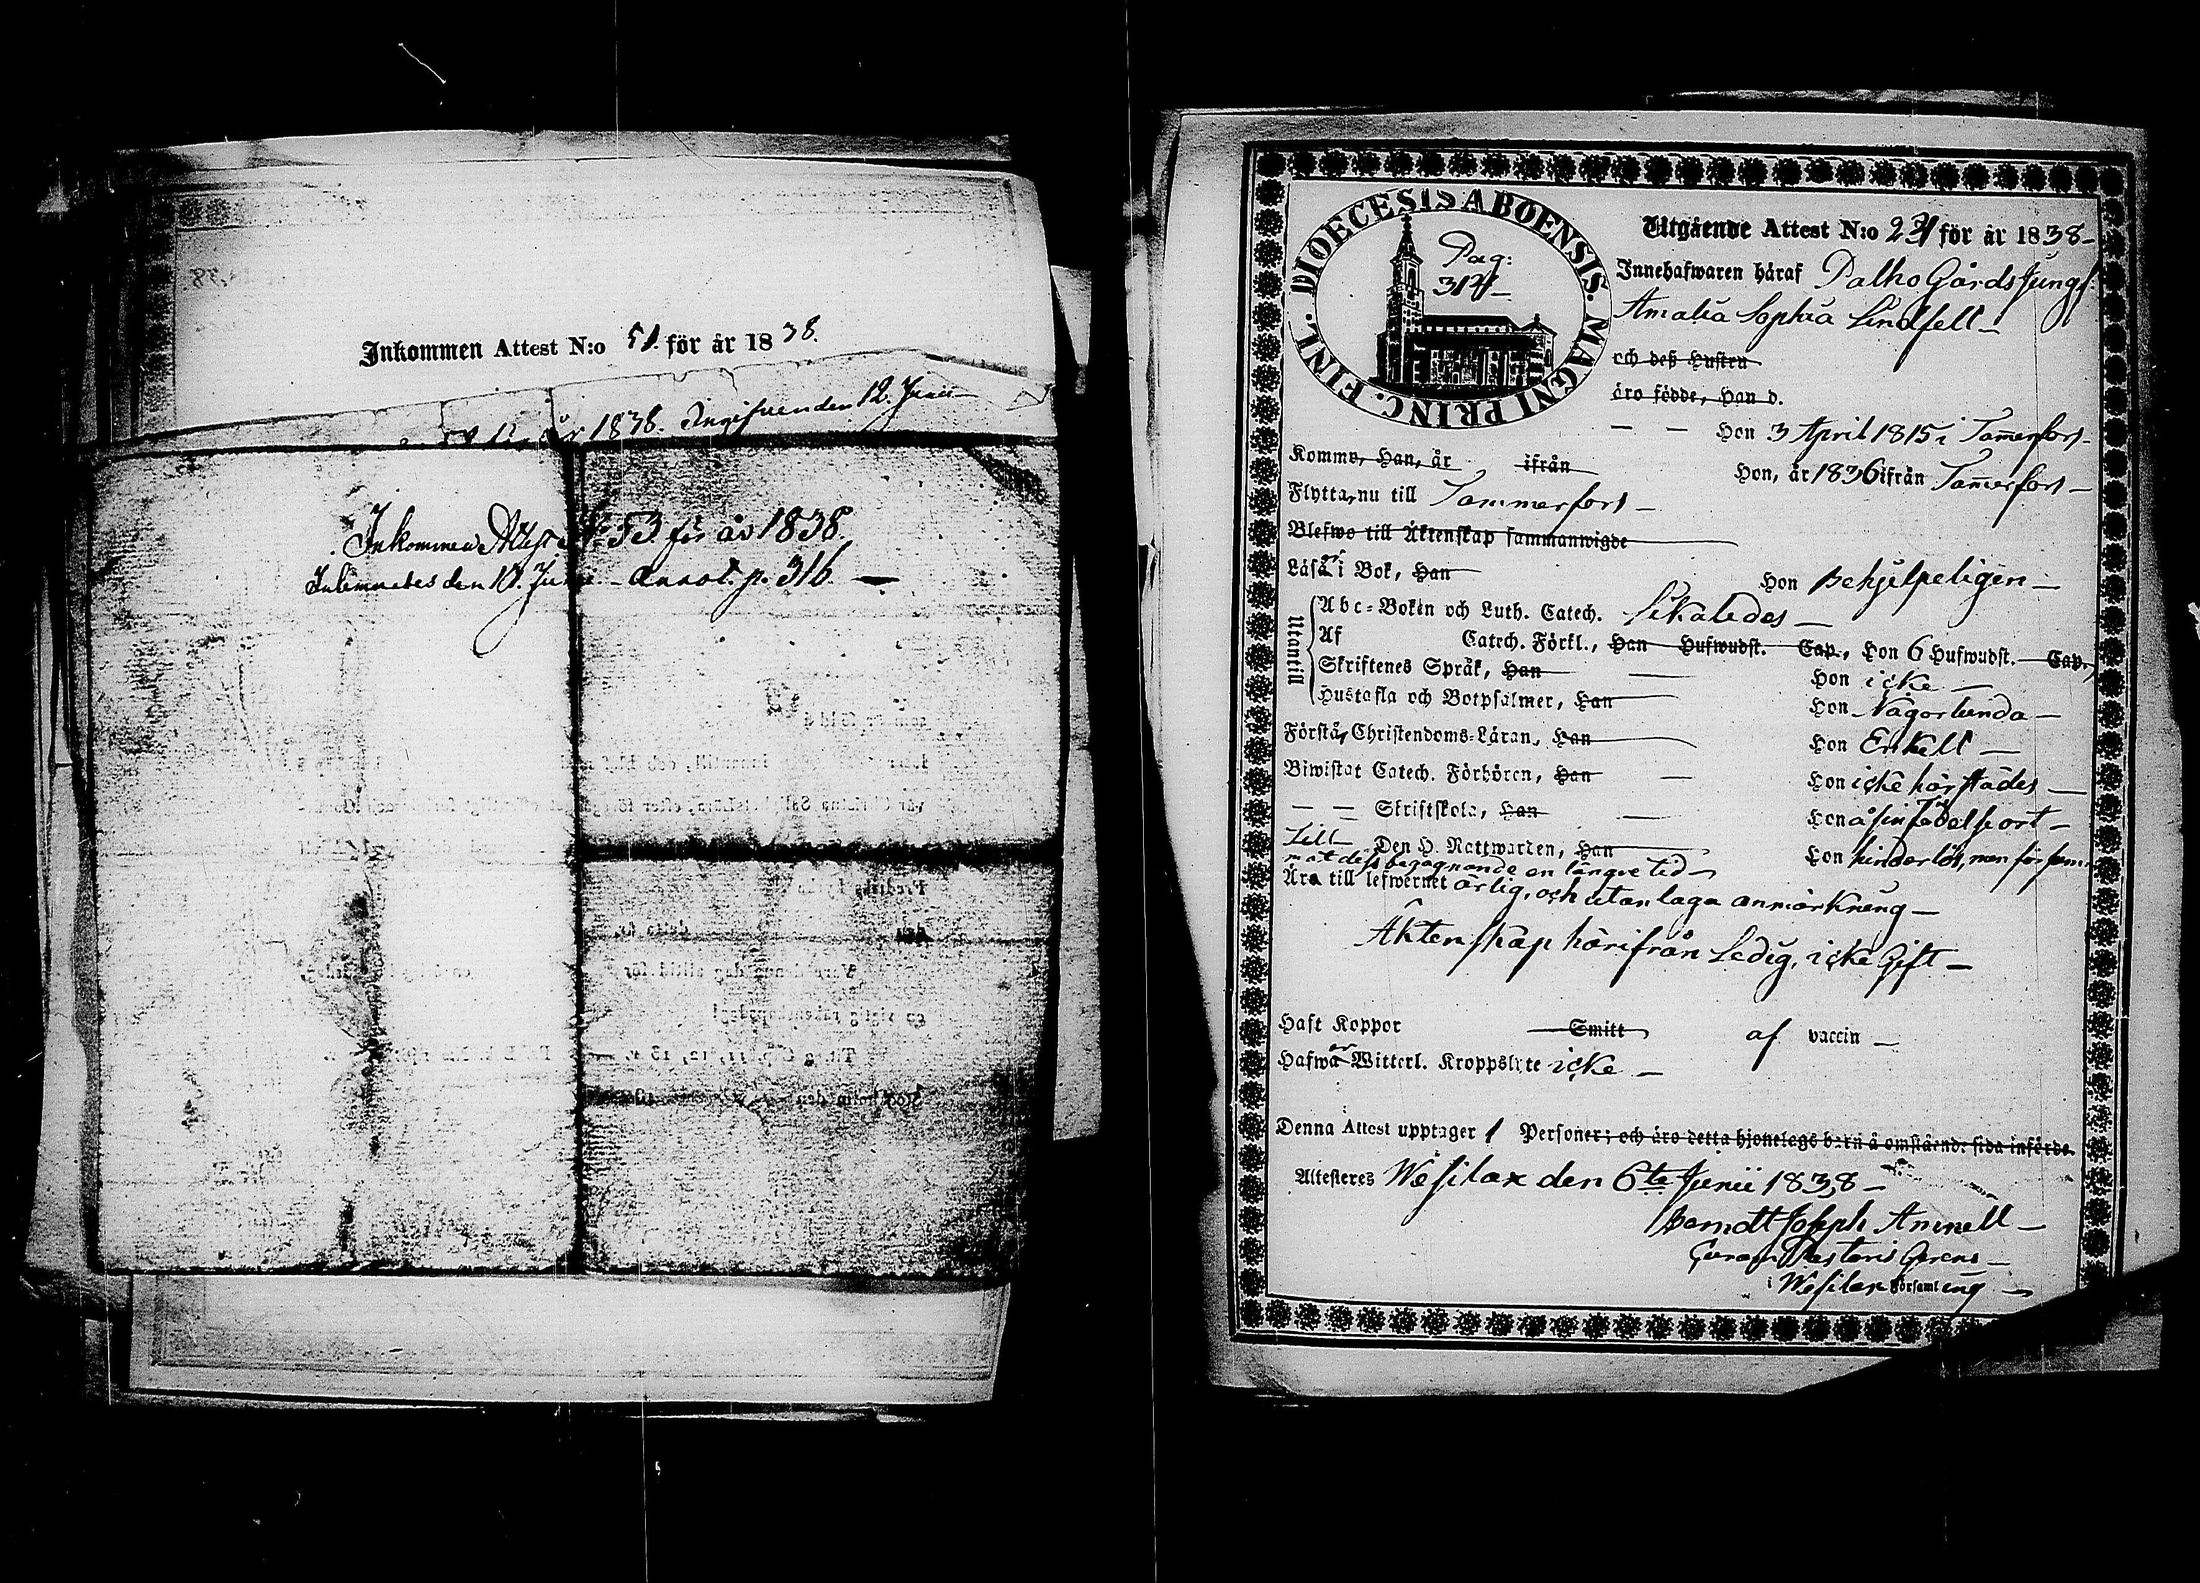 Inkommen Attest N:o 51. för år 1838.
för år 1838. Ingifven den 12. Junii
Inkommen Attest N: 53 för år 1838
Inlemnades den 10. Juni – annot. p. 316. –
DIOECESIS ABOENSIS. MAGNI PRINC. FINL.
Pag:
314 –
Utgående Attest N:o 231 för år 1838 –
Innehafwaren häraf Palho Gårds Jungf.
Amalia Sophia Lindfelt –
och deß Hustru
äro födde, Han d.
— — Hon 3 April 1815 i Tam̄erfors –
Kommo, Han, år ifrån Hon, år 1836 ifrån Tam̄erfors –
Flytta, nu till Tammerfors –
Blefwo till Äktenskap sammanwigde
Läsa i Bok, Han Hon Behjelpeligen –
Utantill
Abc-Boken och Luth. Catech. Likaledes –
Af Catech. Förkl., Han Hufwudst. Cap., Hon 6 Hufwudst. Cap.,
Skriftenes Språk, Han — Hon icke –
Hustafla och Botpsalmer, Han Hon Någorlunda –
Förstå, Christendoms-Läran, Han Hon Enkelt –
Biwistat Catech. Förhören, Han — Hon icke härstädes –
— — Skriftskola, Han — Hon å sin födelseort –
Till Den H. Nattwarden, Han Hon hinderlös, men försum-
mat dess begagnande en längre tid –
Äro till lefwernet ärlig, och utan laga anmärkning –
Äktenskap härifrån Ledig, icke Gift –
Haft Koppor Smitt af vaccin –
Hafwa Witterl. Kroppslyte icke –
Denna Attest upptager 1 Personer; och äro detta hjonelags barn å omstående sida införde.
Attesteres Wesilax den 6te Junii 1838 –
Joseph
Pastoris Gerens –
i Wesilax Församling –